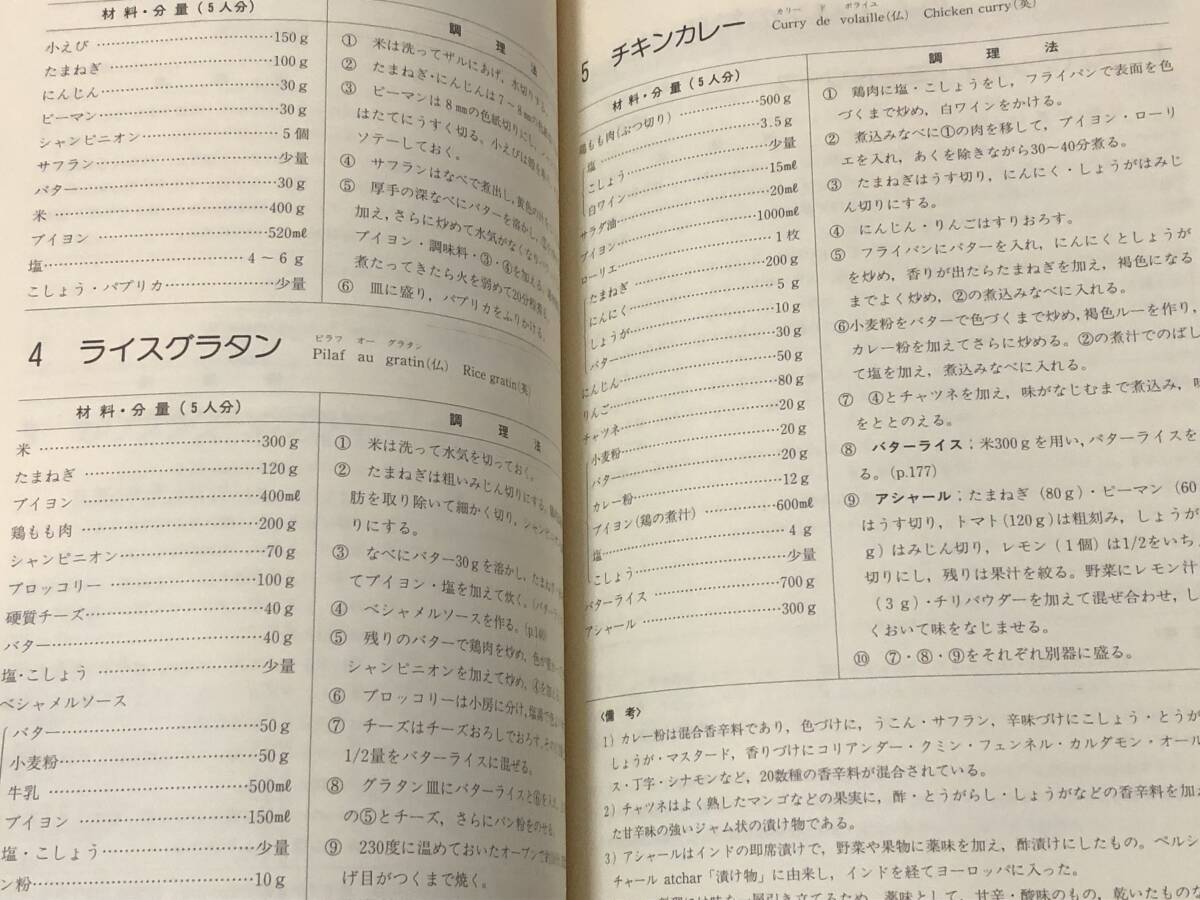 材 料・分 量 (5人分)
小えび…………………………150g
たまねぎ……………………100g
にんじん……………………30g
ピーマン……………………30g
シャンピニオン………………5個
サフラン……………………少量
バター………………………30g
米……………………………400g
ブイヨン……………………520mℓ
塩……………………………4〜6g
こしょう・パプリカ…………少量
調 理 法
① 米は洗ってザルにあげ，水切りする。
② たまねぎ・にんじんは7〜8mmの
③ ピーマンは8mmの色紙切りにし，
はたてにうすく切る。小えびは
ソテーしておく。
④ サフランはなべで煮出し，黄色の
⑤ 厚手の深なべにバターを溶かし，
加え，さらに炒めて水気がなくなり
ブイヨン・調味料・③・④を加える。
煮たってきたら火を弱めて20分
⑥ 皿に盛り，パプリカをふりかける。
4 ライスグラタン
ピラフ オー グラタン
Pilaf au gratin(仏) Rice gratin(英)
材 料・分 量 (5人分)
米……………………………300g
たまねぎ……………………120g
ブイヨン……………………400mℓ
鶏もも肉……………………200g
シャンピニオン………………70g
ブロッコリー………………100g
硬質チーズ…………………40g
バター………………………40g
塩・こしょう………………少量
ベシャメルソース
バター………………………50g
小麦粉………………………50g
牛乳…………………………500mℓ
ブイヨン……………………150mℓ
塩・こしょう………………少量
ン粉…………………………10g
調 理 法
① 米は洗って水気を切っておく。
② たまねぎは粗いみじん切りにする。
肪を取り除いて細かく切り，シャンピニ
りにする。
③ なべにバター30gを溶かし，たまね
てブイヨン・塩を加えて炊く。
④ ベシャメルソースを作る。(p.140)
⑤ 残りのバターで鶏肉を炒め，色が
シャンピニオンを加えて炒め，④を
⑥ ブロッコリーは小房に分け，塩湯で
⑦ チーズはチーズおろしでおろす。その
1/2量をバターライスに混ぜる。
⑧ グラタン皿にバターライスと⑥を入れ，
の⑤とチーズ，さらにパン粉をのせる。
⑨ 230度に温めておいたオーブンで
げ目がつくまで焼く。
5 チキンカレー
カリー ド ボライユ
Curry de volaille(仏) Chicken curry(英)
材 料・分 量 (5人分)
鶏もも肉(ぶつ切り)…………500g
塩……………………………3.5g
こしょう……………………少量
白ワイン……………………15mℓ
サラダ油……………………20mℓ
ブイヨン……………………1000mℓ
ローリエ……………………1枚
たまねぎ……………………200g
にんにく……………………5g
しょうが……………………10g
バター………………………30g
にんじん……………………50g
りんご………………………80g
チャツネ……………………20g
小麦粉………………………20g
バター………………………20g
カレー粉……………………12g
ブイヨン(鶏の煮汁)…………600mℓ
塩……………………………4g
こしょう……………………少量
バターライス………………700g
アシャール…………………300g
調 理 法
① 鶏肉に塩・こしょうをし，フライパンで表面を色
づくまで炒め，白ワインをかける。
② 煮込みなべに①の肉を移して，ブイヨン・ローリ
エを入れ，あくを除きながら30〜40分煮る。
③ たまねぎはうす切り，にんにく・しょうがはみじ
ん切りにする。
④ にんじん・りんごはすりおろす。
⑤ フライパンにバターを入れ，にんにくとしょうが
を炒め，香りが出たらたまねぎを加え，褐色になる
までよく炒め，②の煮込みなべに入れる。
⑥小麦粉をバターで色づくまで炒め，褐色ルーを作り，
カレー粉を加えてさらに炒める。②の煮汁でのばし
て塩を加え，煮込みなべに入れる。
⑦ ④とチャツネを加え，味がなじむまで煮込み，味
をととのえる。
⑧ バターライス；米300gを用い，バターライスを
る。(p.177)
⑨ アシャール；たまねぎ (80g)・ピーマン (60
はうす切り，トマト(120g)は粗刻み，しょうが
g)はみじん切り，レモン (1個) は1/2をいち
切りにし，残りは果汁を絞る。野菜にレモン汁
(3g)・チリパウダーを加えて混ぜ合わせ，し
くおいて味をなじませる。
⑩ ⑦・⑧・⑨をそれぞれ別器に盛る。
〈備 考〉
1) カレー粉は混合香辛料であり，色づけに，うこん・サフラン，辛味づけにこしょう・とうが
しょうが・マスタード，香りづけにコリアンダー・クミン・フェンネル・カルダモン・オール
ス・丁字・シナモンなど，20数種の香辛料が混合されている。
2) チャツネはよく熟したマンゴなどの果実に，酢・とうがらし・しょうがなどの香辛料を加え
た甘辛味の強いジャム状の漬け物である。
3) アシャールはインドの即席漬けで，野菜や果物に薬味を加え，酢漬けにしたもの。ペルシ
チャール atchar「漬け物」に由来し，インドを経てヨーロッパに入った。
引き立てるため，薬味として，甘辛・酸味のもの，乾いたものな